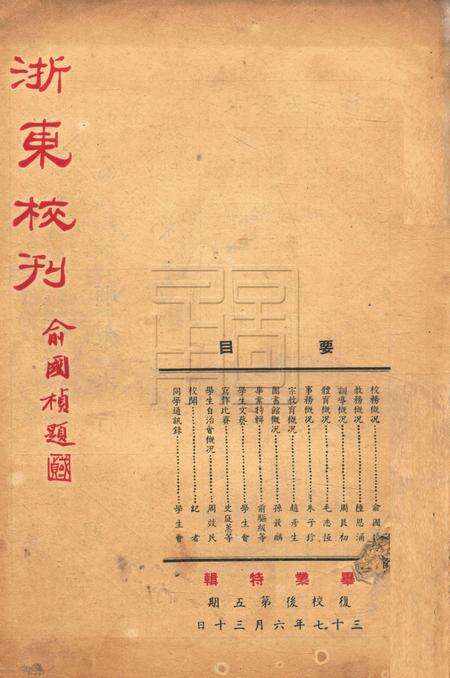 浙東校刊
俞國楨題
要目
校務概況……俞國
教務概況……陸恩涌
訓導概況……周良初
體育概況……毛志恆
事務概況……朱子珍
宗教育概況……趙彥生
圖書館概況……孫
畢業特輯……前驅級等
學生文藝……學生會
寫作比賽……史庭蕙等
學生自治會概況……周啟民
校聞……記者
同學通訊錄……學生會
畢業特輯
復校後第五期
三十七年六月三十日